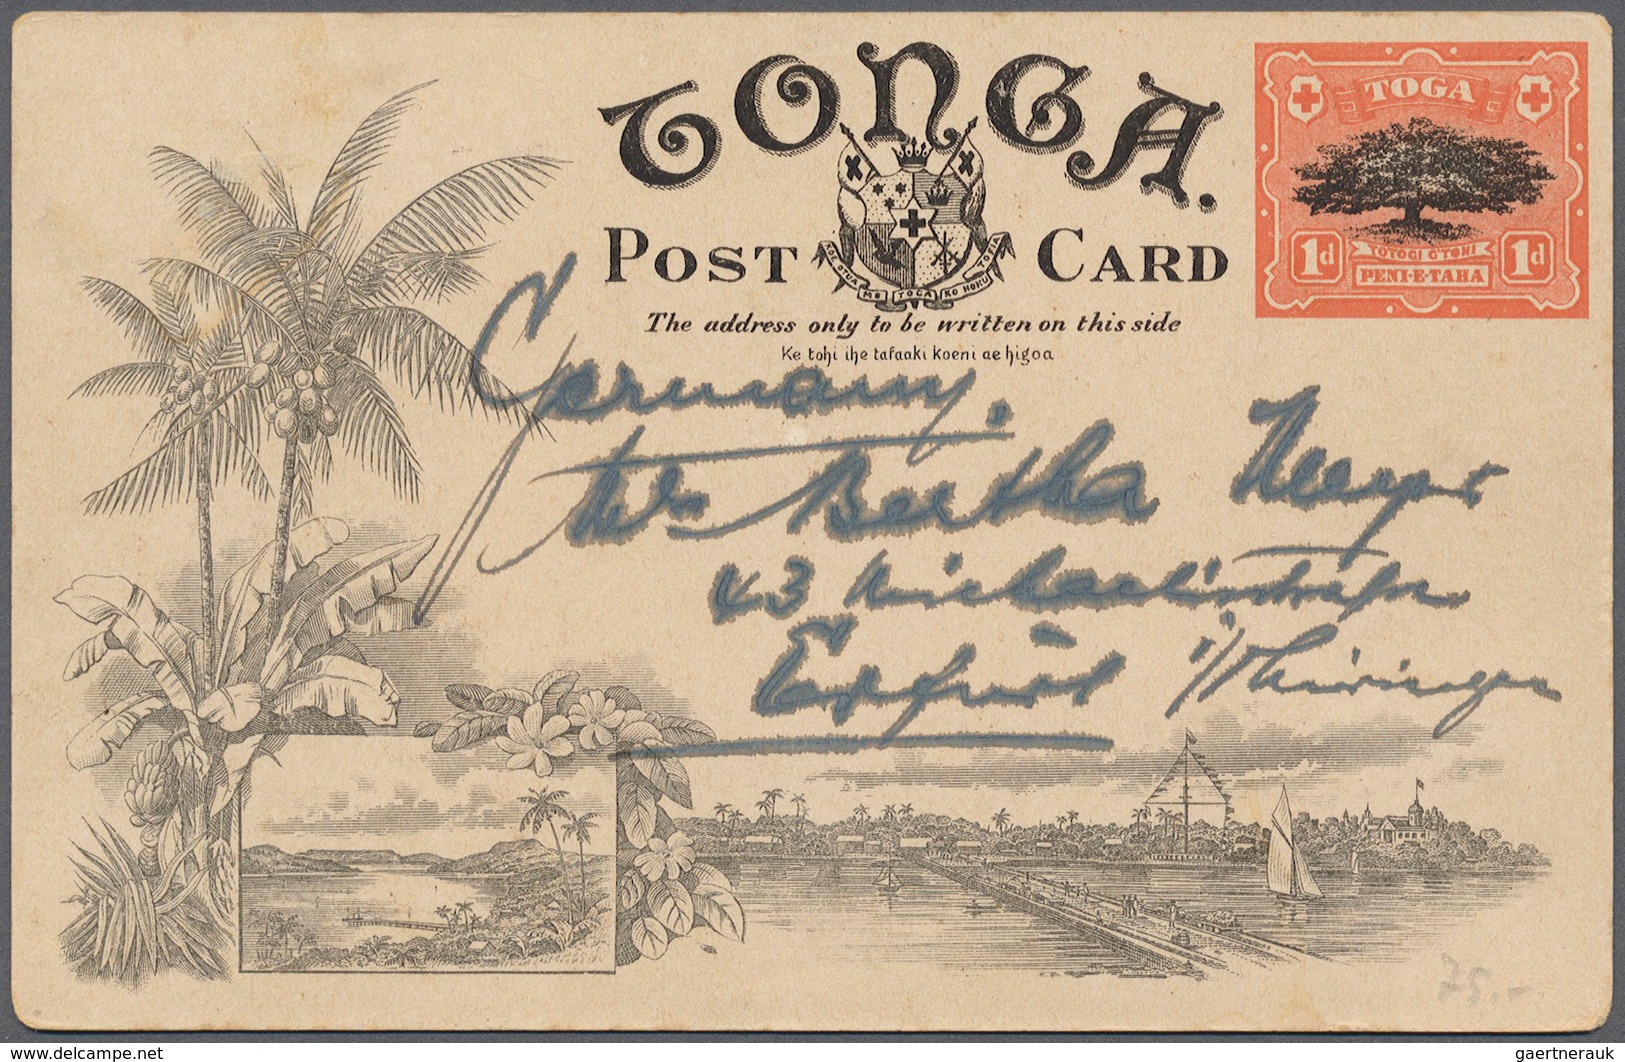 TONGA.
POST CARD
KOE OTUA MO TOGA KO HOKU TOFIA
The address only to be written on this side
Ke tohi ihe tafaaki koeni ae higoa
TOGA
TOTOGI O TOHI
1d PENI-E-TAHA 1d
Germany.
Bertha Meyer
43 Michaelisstraße
Erfurt i/Thüringen
75.-
delcampe.net
gaertnerauk